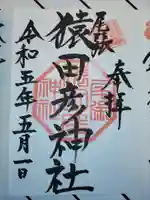 奉拝
尾張
猿田彦神社
令和五年五月一日